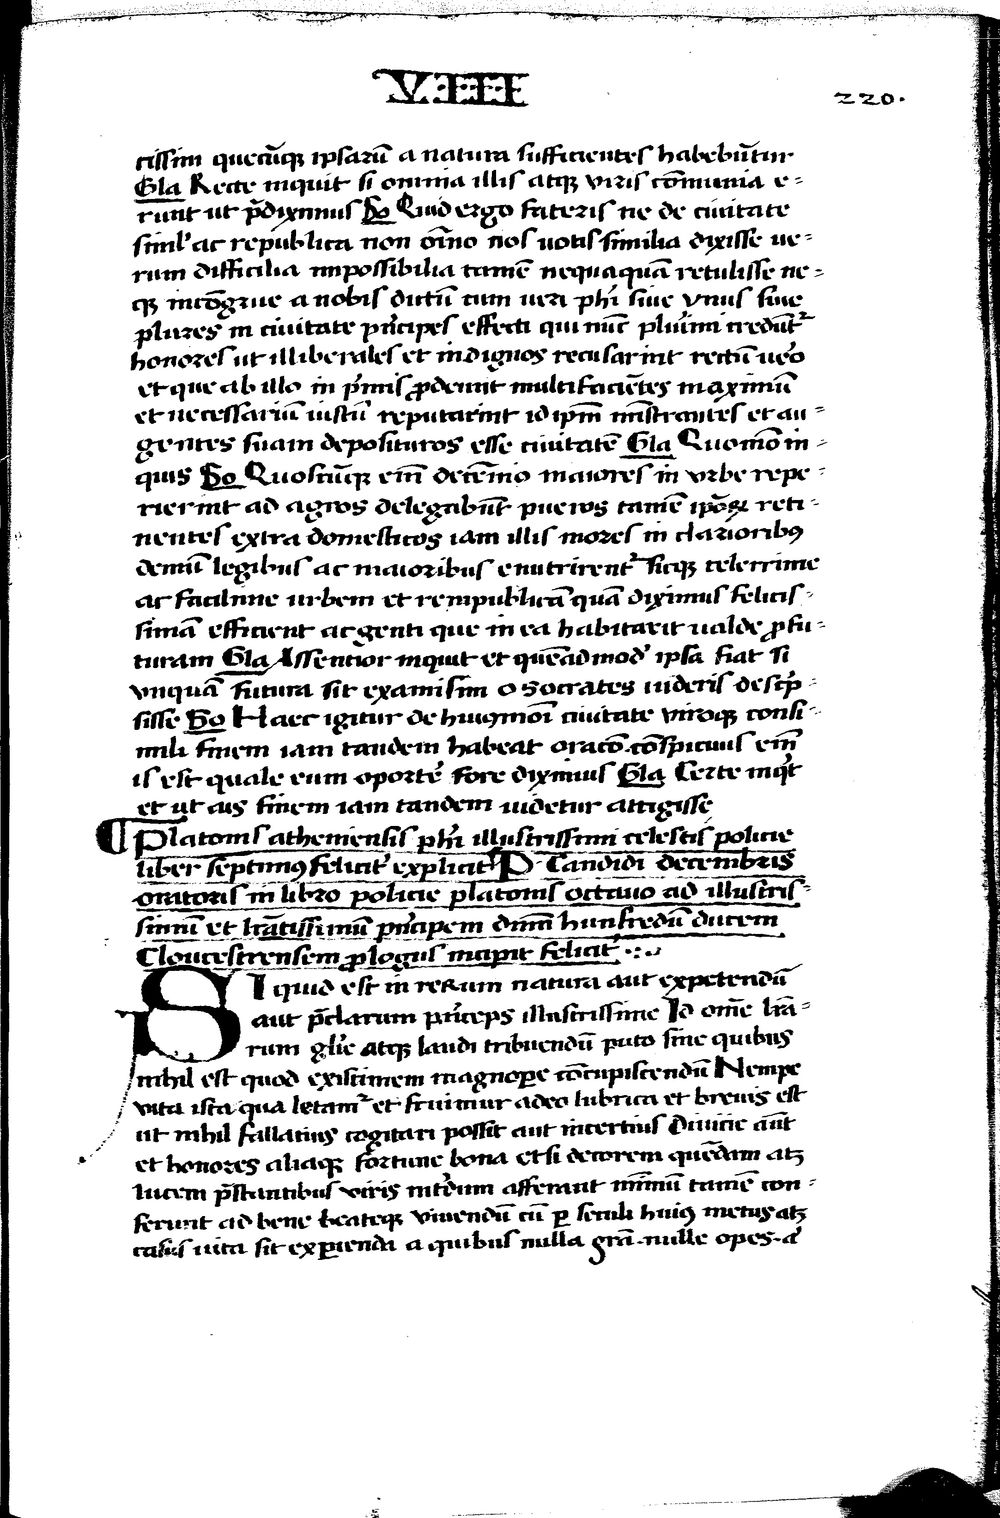 VIII
220.
cissim quecūqꝫ ipsarū a natura sufficientes habebūtur
Gla Recte inquit si omnia illis atqꝫ viris cōmunia e-
runt ut p̄diximus So Quid ergo fateris ne de ciuitate
simĺ ac republica non oīno nos uotis similia dixisse ue-
rum difficilia impossibilia tamē nequaquā retulisse ne-
qꝫ incōgrue a nobis dictū cum ueri phī siue vnus siue
plures in ciuitate pͥncipes effecti qui nūc plurimi credūtᷣ
honores ut illiberales et indignos recusarint rectū uero
et que ab illo in pͥmis ꝓdeunt multi faciētes maximū
et necessariū iustū reputarint id ipm̄ mīstrantes et au-
gentes suam deposituros esse ciuitatē Gla Quomō in-
quis So Quoscūqꝫ eīn decēnio maiores in vrbe repe-
rierint ad agros delegabūt pueros tamē ipōꝝ reti-
nentes extra domesticos iam illis mores in clarioribꝯ
demū legibus ac maioribus enutrirentᷣ sicqꝫ celerrime
ac facilime urbem et rempublicā quā diximus felicis-
simā efficient ac genti que in ea habitarit ualde ꝓfu-
turam Gla Assentior inquit et quēadmod' ipsa fiat si
vnquā futura sit examisim o Socrates uideris descͥp-
sisse So Haec igitur de huiꝯmōi ciuitate viroqꝫ consi-
mili finem iam tandem habeat oracō cōspicuus eīn
is est quale eum oportē fore diximus Gla Certe inqͥt
et ut ais finem iam tandem uidetur attigisse
Platonis atheniensis phī illustrissimi celestis policie
liber septimꝯ felicit' explicit P. Candidi decembris
oratoris in libro policie platonis octauo ad illustris-
simū et lrātissimū pͥncipem dnm̄ hunfredū ducem
Cloucestrensem ꝓlogus incipit felicit'
SI quid est in rerum natura aut expetendū
aut p̄clarum pͥnceps illustrissime Id om̄e lrā-
rum glīe atqꝫ laudi tribuendū puto sine quibus
nihil est quod existimem magnoꝑe cōcupiscendū Nempe
vita ista qua letamᷣ et fruimur adeo lubrica et breuis est
ut nihil fallatius cogitari possit aut incertius Diuitie aūt
et honores aliaqꝫ fortune bona etsi decorem quēdam atqꝫ
lucem p̄stantibus viris intͤdum afferant mīmū tamē con-
ferunt ad bene beateqꝫ viuendū cū ꝑ seculi huiꝯ metus atqꝫ
casus uita sit exꝑienda a quibus nulla grā nulle opes